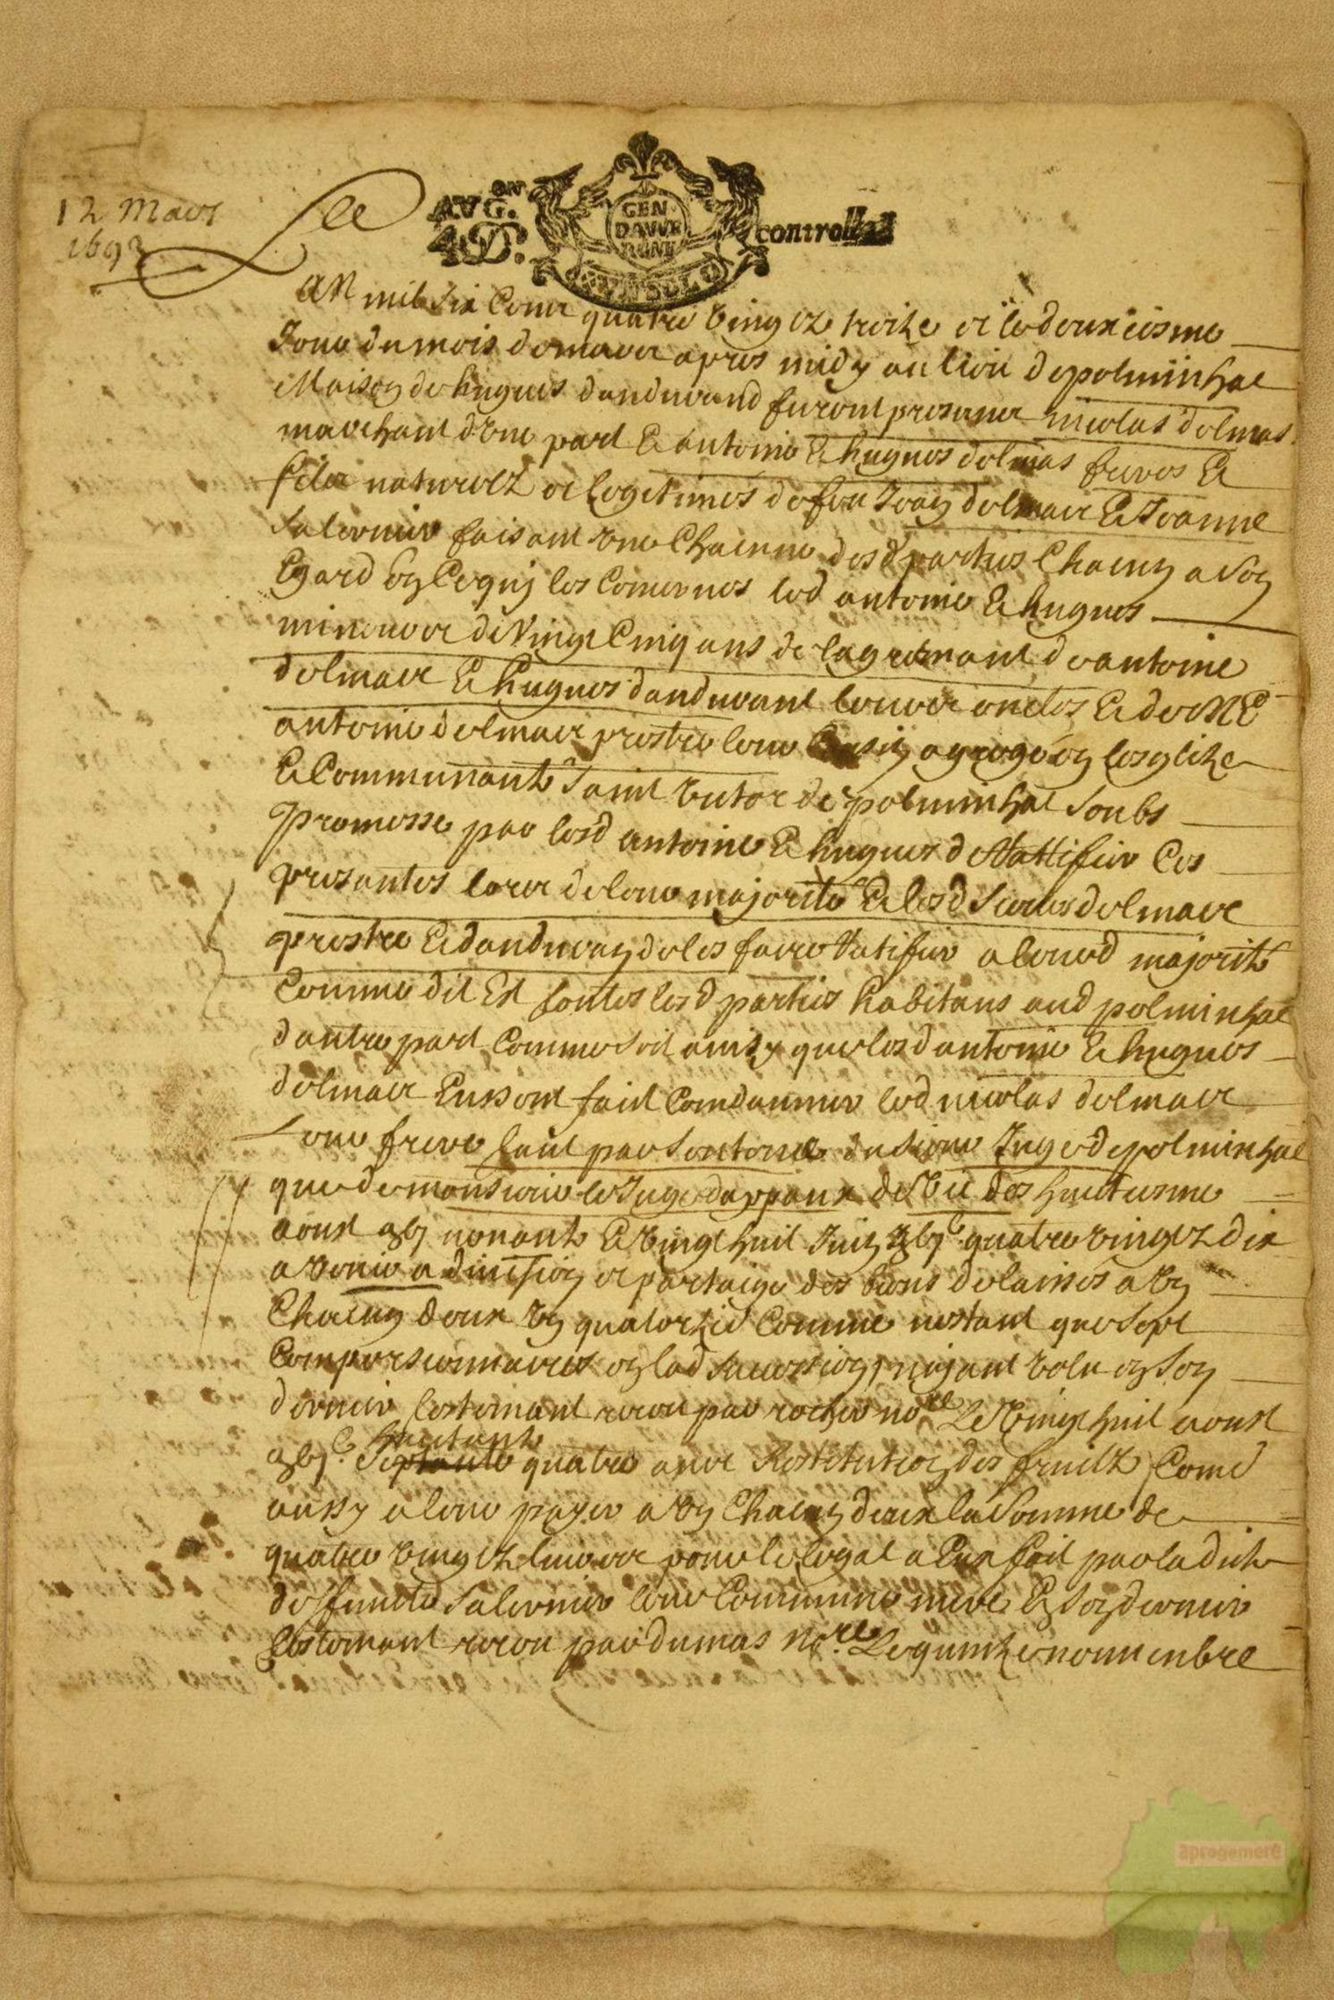 12 Mars
1693
AVG.ON
4 D.
GEN
D'AVVE
RGNE
UN SOL
controllé
Lan mil six Cens quatre vingtz treize et le deuxiesme
Jour du mois de mars apres midy au lieu de polminhac
Maison de hugues dandurand furent presens nicolas delmas
marchant d'une part Et antoine Et hugues delmas freres Et
filz naturelz et legitimes de feu Jean delmas Et Jeanne
Salernier faisant une Chacune desd parties Chacun a son
Egard En Ce quy les Concernes led antoine Et hugues
mineurs de Vingt Cinq ans de lagremant de antoine
delmas Et hugues dandurant leurs oncles Et de Me
antoine delmas prestre leur agrege en lesglize
Et Communauté Saint victor de polminhac soubs
promesse par lesd antoine Et hugues de Rattifier Ces
presantes lors de leur majorité Et lesd Sieurs delmas
prestre Et danduran de les faire Ratifier a leurd majorité
Comme dit Est toutes lesd parties habitans aud polminhac
dautre part Comme soit ainsy que lesd antoine Et hugues
delmas Eussent fait Condamner led nicolas delmas
Leur frere tant par Sentence du sieur Juge de polminhac
que de monsieur le Juge dappaux de Vic des huitiesme
aoust nonante Et Vingt huit Juin quatre vingtz dix
a venir a division et partaige des biens delaissés a Un
Chacun deux Un quatorzie Comme nestant que sept
Comparsionnaires en lad sucession nayant Volu en son
dernier testemant receu par rocher nore Le Vingt huit aoust
huitante
Septante quatre avec Restitution des fruitz Come
aussy a leur payer a Un Chacun deux la Somme de
quatre vingtz livres pour le legat a Eux fait par ladicte
deffuncte Salernier leur Commune mere En son dernier
testemant receu par dumas Nore Le quinze novembre
aprogemere